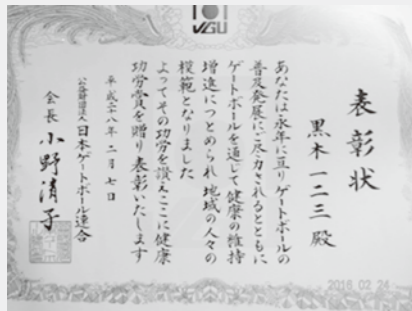 JGU
表彰状
黒木一二三殿
あなたは永年に亘りゲートボールの
普及発展にご尽力されるとともに
ゲートボールを通じて健康の維持
増進につとめられ地域の人々の
模範となりました
よってその功労を讃えここに健康
功労賞を贈り表彰いたします
平成二八年二月七日
公益財団法人日本ゲートボール連合
会長小野清子
2016 02 24